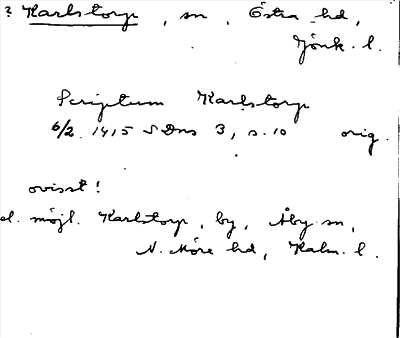 ? Karlstorp, sn, Östra hd,
Jönk. l.
Scriptum Karlstorp
6/2 1415 SDns 3, s. 10 orig.
ovisst!
el. möjl. Karlstorp, by, Åby sn,
N. Möre hd, Kalm. l.